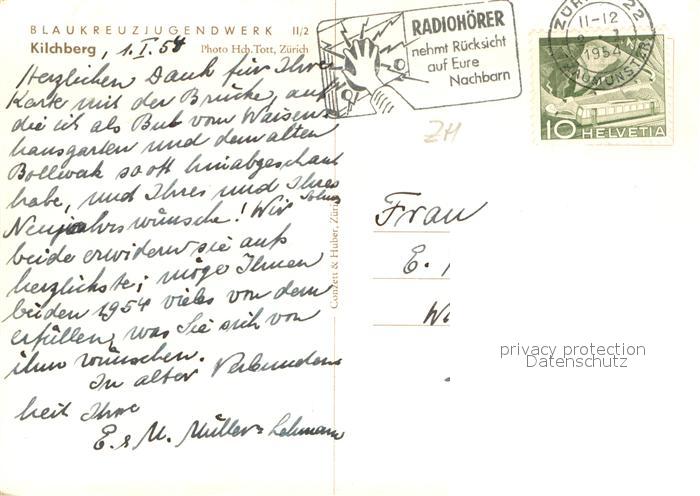 BLAUKREUZJUGENDWERK II/2
Kilchberg, 1.I.54 Photo Hch. Tott, Zürich
Herzlichen Dank für Ihre
Karte mit der Brücke, auf
die ich als Bub vom Waisen-
hausgarten und dem alten
Bollwerk so oft hinabgeschaut
habe, und Ihres und Ihres
Sohnes
Neujahrswünsche! Wir
beide erwidern sie aufs
herzlichste; möge Ihnen
beiden 1954 vieles von dem
erfüllen, was Sie sich von
ihm wünschen.
In alter Verbunden-
heit Ihre
E. & M. Müller-Lehmann
Conzett & Huber, Zürich
RADIOHÖRER
nehmt Rücksicht
auf Eure
Nachbarn
ZÜRICH 22
11-12
1954
FRAUMÜNSTER
10 HELVETIA
ZH
Frau
E.
privacy protection
Datenschutz